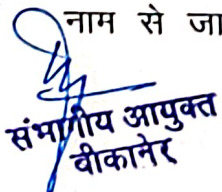 नाम से जा
संभागीय आयुक्त
बीकानेर